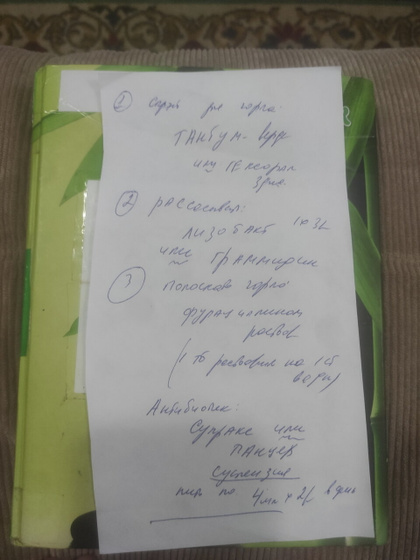 ① Спрей для горла:
ТАНТУМ-верде
или ГЕКсорал
Спрей
② РАССОСАТЬ:
ЛИЗОБАКТ 1х3
или ГРАММИДИН
③ Полоскать горло
фурацилином
раствор
(1 тб растворить на 1 ст
воды)
Антибиотик:
Супракс или
ПАНЦЕФ
Суспензия
пить по 4мл х 2 в день